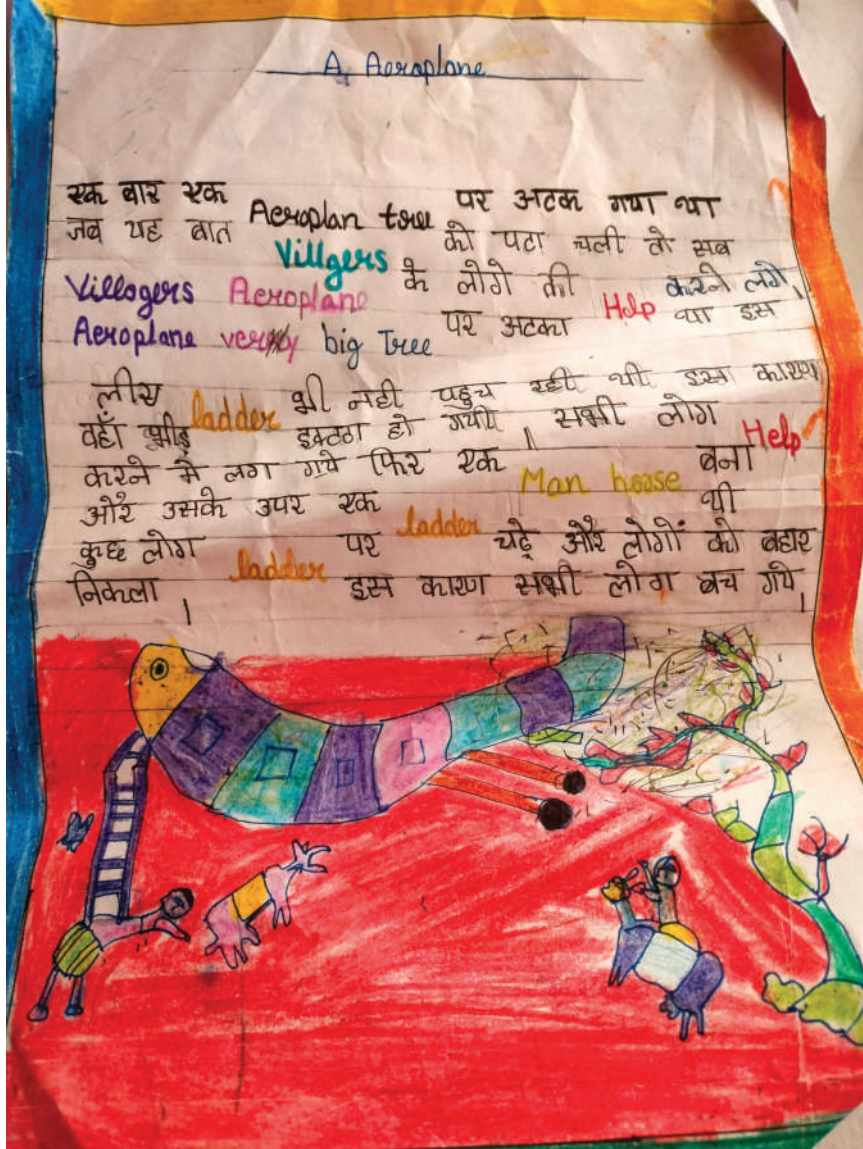 A Aeroplane
एक बार एक Aeroplan tree पर अटक गया था
जब यह बात Villgers को पता चली तो सब
Villogers Aeroplane के लोगो की Help करने लगे।
Aeroplane very big Tree पर अटका था इस
लीए ladder भी नही पहुच रही थी इसा कारण
वहाँ भीड़ इक्टठा हो गयी॥ सभी लोग Help
करने मे लग गये फिर एक Man hoose बना
और उसके उपर एक ladder थी
कुछ लोग ladder पर चढ़े और लोगों को बहार
निकला। इस कारण सभी लोग बच गये।